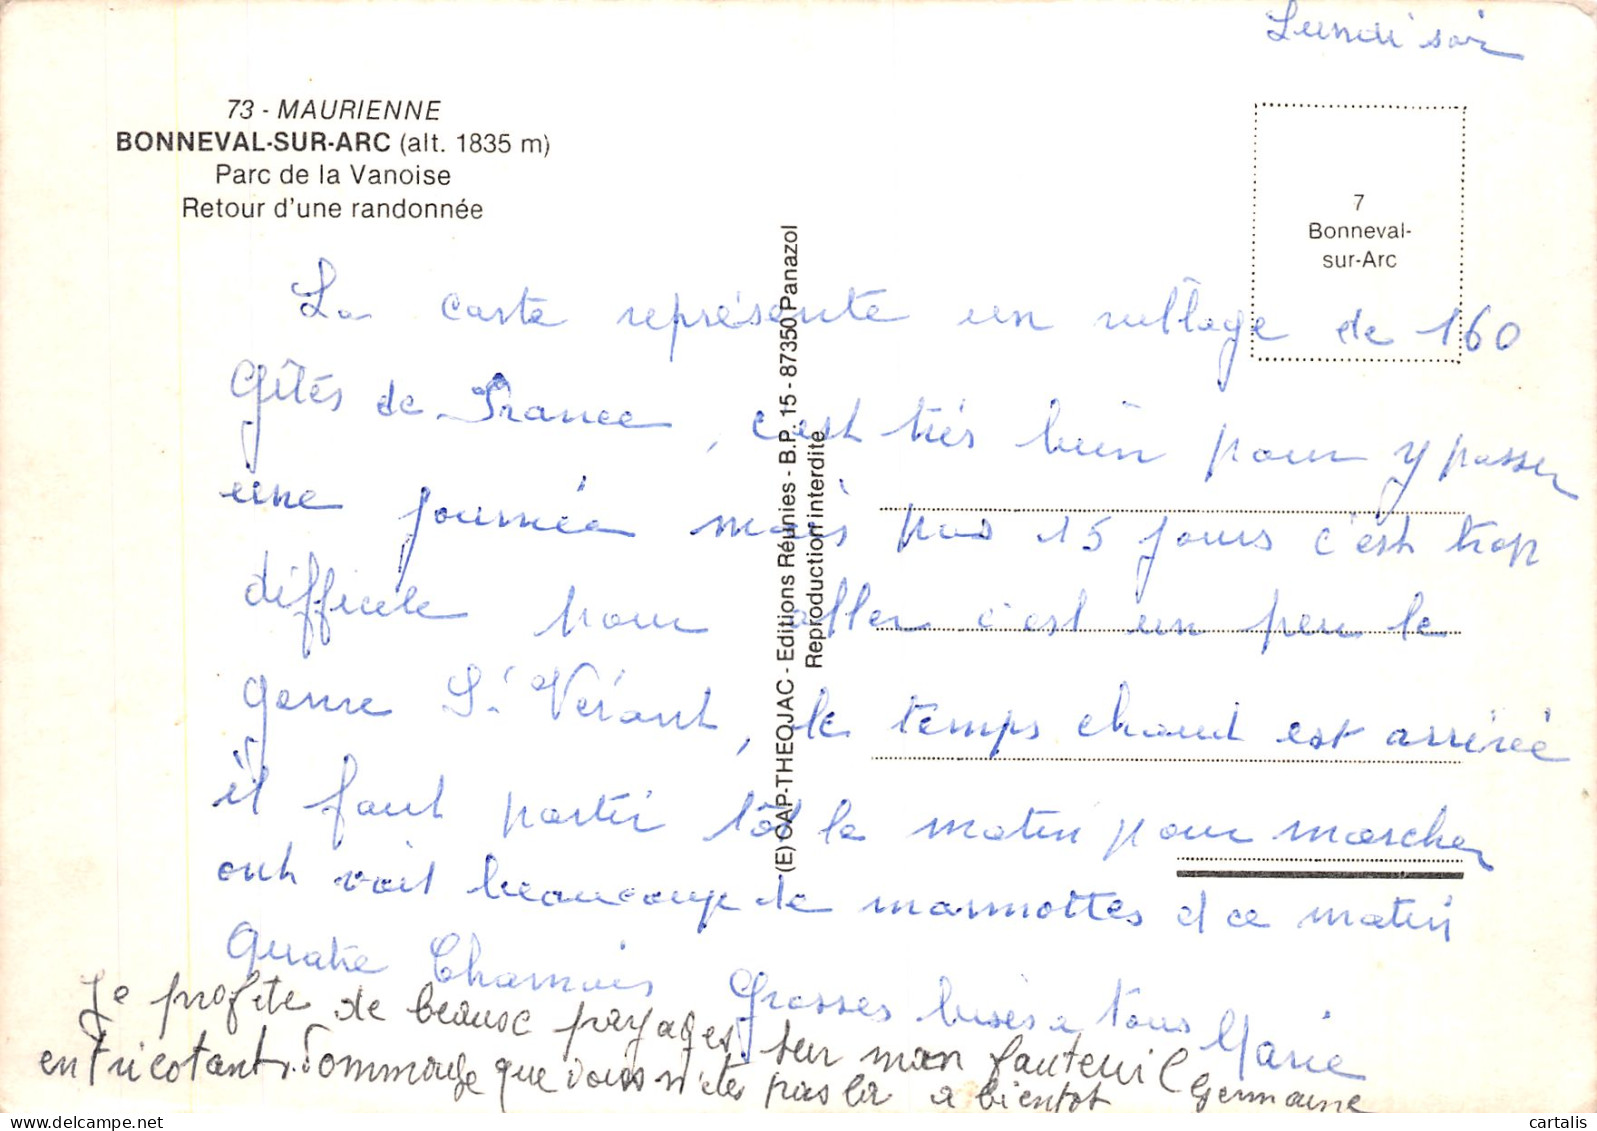 Lundi soir
73 - MAURIENNE
BONNEVAL-SUR-ARC (alt. 1835 m)
Parc de la Vanoise
Retour d'une randonnée
7
Bonneval-
sur-Arc
(E) CAP-THEOJAC - Editions Réunies - B.P. 15 - 87350 Panazol
Reproduction interdite
La carte représente un village de 160
Gîtés de France, c'est très bien pour y passer
une journée mais pas 15 jours c'est trop
difficile pour aller c'est un peu le
genre St Vérant, le temps chaud est arrivée
il faut partir tôt le matin pour marcher
ont voit beaucoup de marmottes et ce matin
quatre Chamois Grosses bises a tous Marie
Je profite de beaux paysages sur mon fauteuil
en tricotant. Dommage que vous n'êtes pas là a bientot Germaine
cartalis
www.delcampe.net